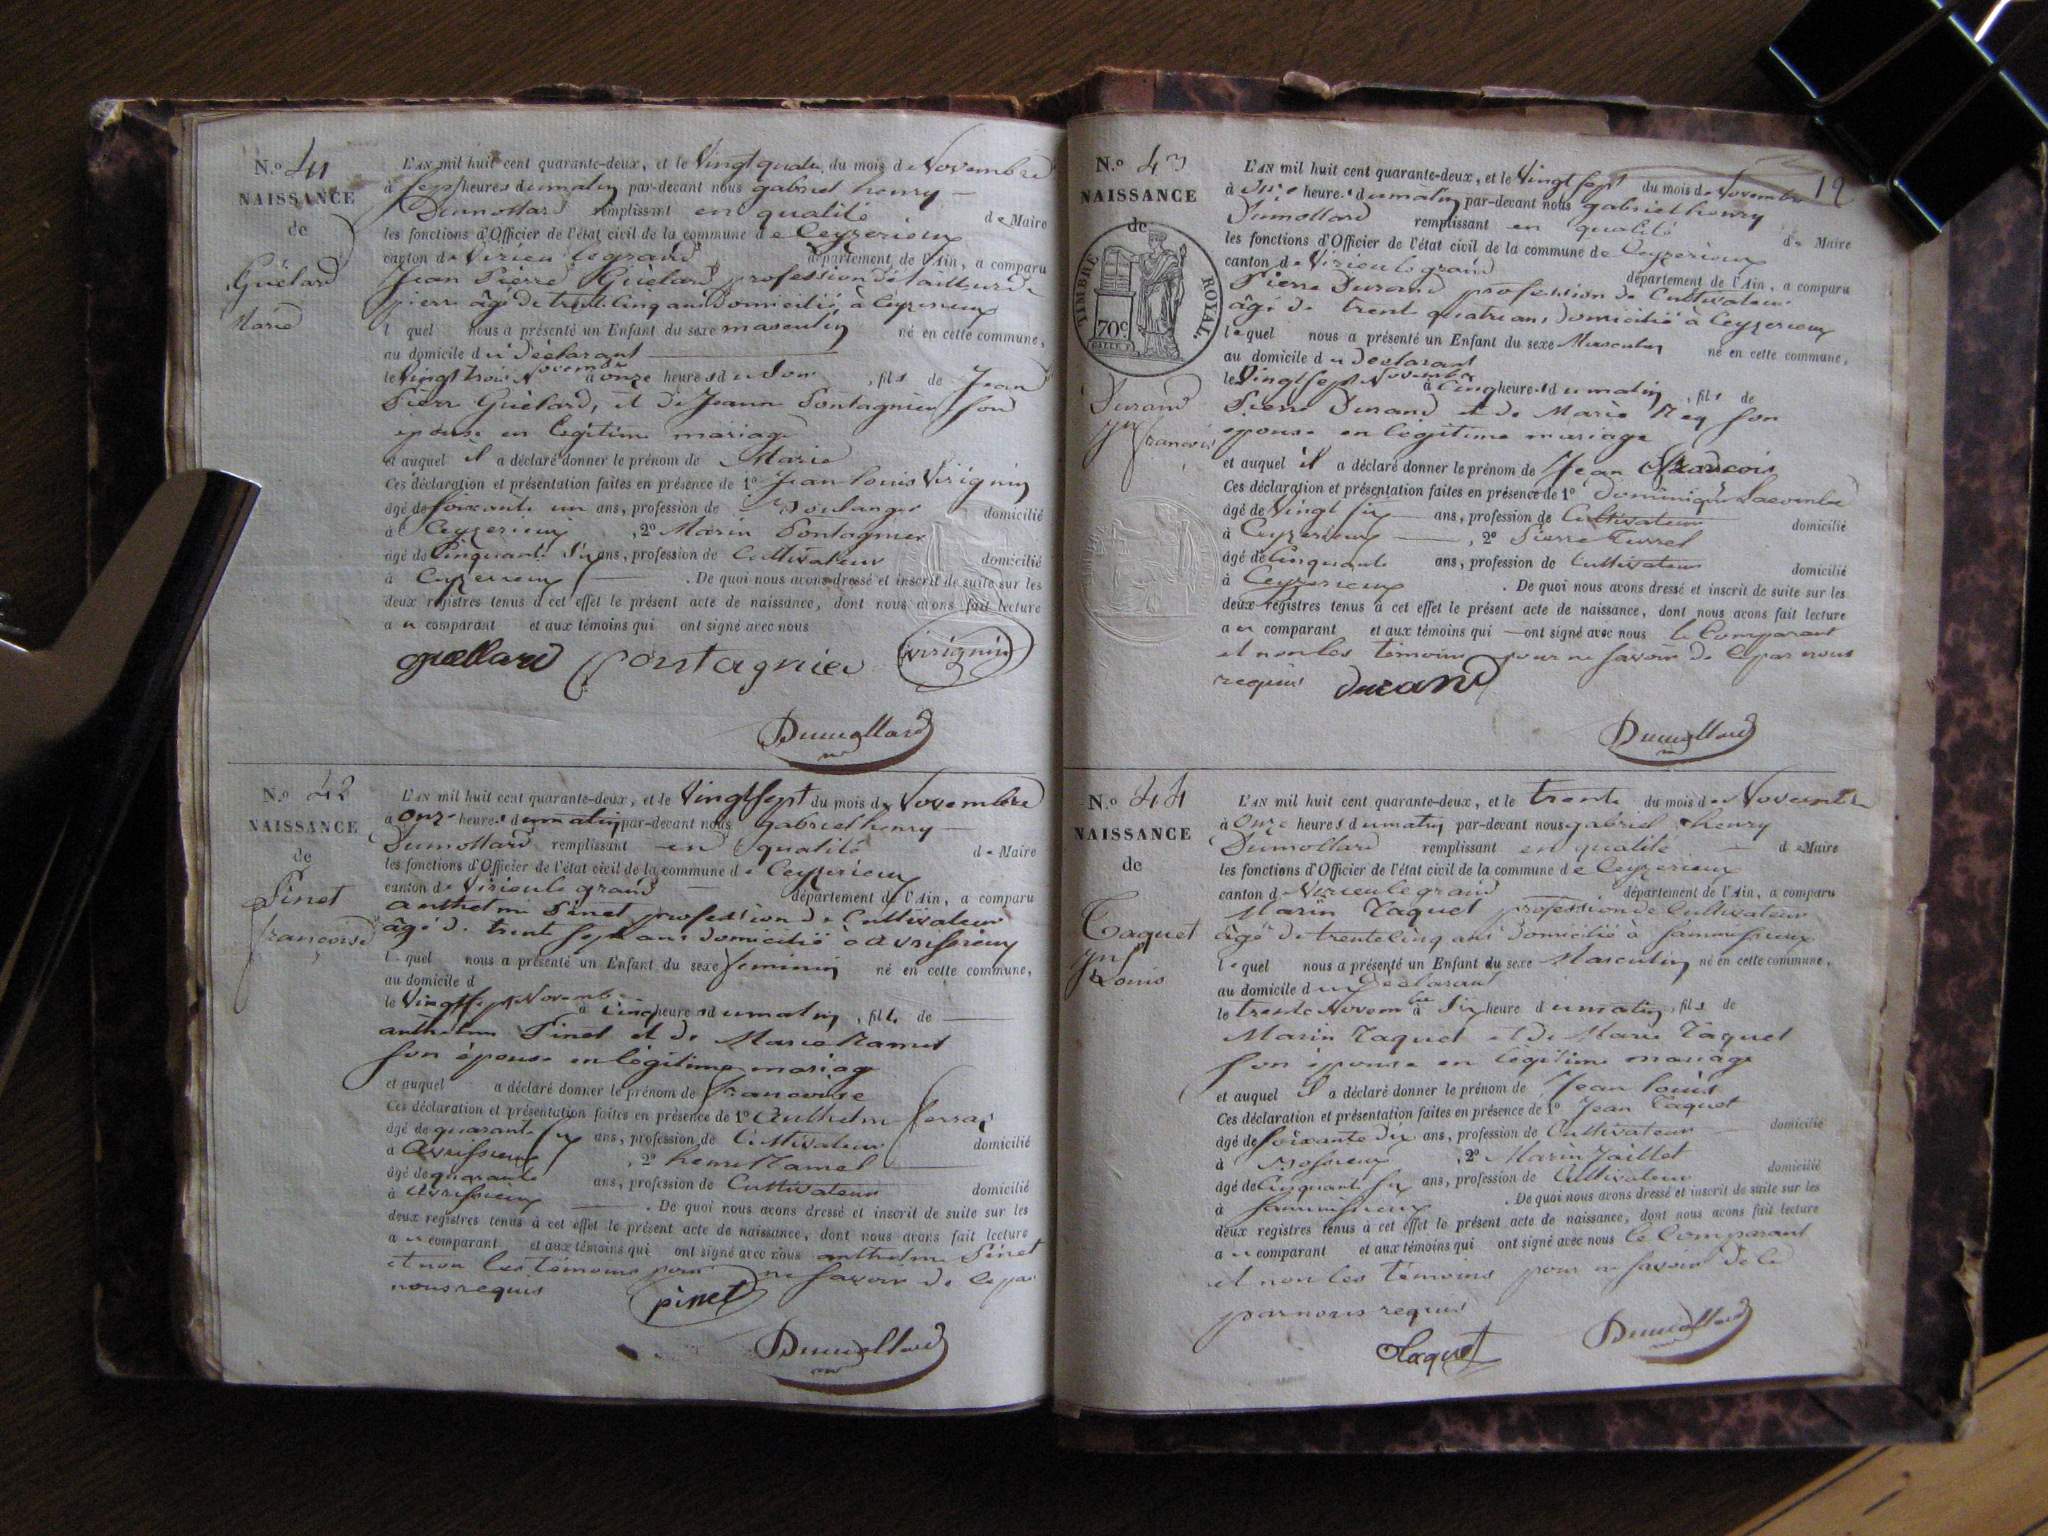 N.º 41
NAISSANCE
de
Guélard
Marie
L'AN mil huit cent quarante-deux, et le Vingt quatre du mois de Novembre
à sept heures du matin par-devant nous gabriel henry
Dumollard remplissant en qualité de Maire
les fonctions d'Officier de l'état civil de la commune de Ceyzerieux
canton de Virieu le grand département de l'Ain, a comparu
Jean Pierre Guélard profession de tailleur de
pierre âgé de trente cinq ans domicilié à Ceyzerieux
lequel nous a présenté un Enfant du sexe masculin né en cette commune,
au domicile du déclarant
le Vingt trois Novembre à onze heures du soir, fils de Jean
Pierre Guélard, et de Jeanne Pontagnier son
épouse en légitime mariage
et auquel il a déclaré donner le prénom de Marie
Ces déclaration et présentation faites en présence de 1º Jean louis Virignin
âgé de soixante un ans, profession de Boulanger domicilié
à Ceyzerieux, 2º Marin Pontagnier
âgé de Cinquante six ans, profession de Cultivateur domicilié
à Ceyzerieux. De quoi nous avons dressé et inscrit de suite sur les
deux registres tenus à cet effet le présent acte de naissance, dont nous avons fait lecture
au comparant et aux témoins qui ont signé avec nous
guellard pontagnier virignin
Dumollard
N.º 42
NAISSANCE
de
Pinet
françoise
L'AN mil huit cent quarante-deux, et le Vingt sept du mois de Novembre
à onze heures du matin par-devant nous gabriel henry
Dumollard remplissant en qualité de Maire
les fonctions d'Officier de l'état civil de la commune de Ceyzerieux
canton de Virieu le grand département de l'Ain, a comparu
anthelme Pinet profession de Cultivateur
âgé de trente sept ans domicilié à avrissieux
lequel nous a présenté un Enfant du sexe feminin né en cette commune,
au domicile d
le Vingt sept Novemb à Cinq heures du matin, fille de
anthelme Pinet et de Marie Ramel
son épouse en légitime mariage
et auquel a déclaré donner le prénom de francoise
Ces déclaration et présentation faites en présence de 1º Anthelm
âgé de quarante six ans, profession de Cultivateur domicilié
à avrissieux, 2º henri Ramel
âgé de quarante ans, profession de Cultivateur domicilié
à avrissieux. De quoi nous avons dressé et inscrit de suite sur les
deux registres tenus à cet effet le présent acte de naissance, dont nous avons fait lecture
au comparant et aux témoins qui ont signé avec nous anthelme Pinet
et non les témoins pour ne savoir de ce par
nous requis pinet
Dumollard
12
N.º 43
NAISSANCE
de
TIMBRE ROYAL
70c
Durand
Jn françois
L'AN mil huit cent quarante-deux, et le Vingt sept du mois de Novembre
à onze heures du matin par-devant nous gabriel henry
Dumollard remplissant en qualité de Maire
les fonctions d'Officier de l'état civil de la commune de Ceyzerieux
canton de Virieu le grand département de l'Ain, a comparu
Pierre Durand profession de Cultivateur
âgé de trente quatre ans, domicilié à Ceyzerieux
lequel nous a présenté un Enfant du sexe Masculin né en cette commune,
au domicile du déclarant
le Vingt sept Novembre à Cinq heures du matin, fils de
Pierre Durand et de Marie son
épouse en légitime mariage
et auquel il a déclaré donner le prénom de Jean francois
Ces déclaration et présentation faites en présence de 1º Dominique Lacombe
âgé de Vingt six ans, profession de Cultivateur domicilié
à Ceyzerieux, 2º Pierre Turrel
âgé de Cinquante ans, profession de Cultivateur domicilié
à Ceyzerieux. De quoi nous avons dressé et inscrit de suite sur les
deux registres tenus à cet effet le présent acte de naissance, dont nous avons fait lecture
au comparant et aux témoins qui ont signé avec nous le Comparant
et non les témoins pour ne savoir de ce par nous
requis durand
Dumollard
N.º 44
NAISSANCE
de
Taquet
Jn Louis
L'AN mil huit cent quarante-deux, et le trente du mois de Novembre
à onze heures du matin par-devant nous gabriel henry
Dumollard remplissant en qualité de Maire
les fonctions d'Officier de l'état civil de la commune de Ceyzerieux
canton de Virieu le grand département de l'Ain, a comparu
Marin Taquet profession de Cultivateur
âgé de trente cinq ans domicilié à
lequel nous a présenté un Enfant du sexe Masculin né en cette commune,
au domicile du déclarant
le trente Novembre à Six heure du matin, fils de
Marin Taquet et de Marie Taquet
son épouse en légitime mariage
et auquel il a déclaré donner le prénom de Jean louis
Ces déclaration et présentation faites en présence de 1º Jean Taquet
âgé de soixante dix ans, profession de Cultivateur domicilié
à, 2º Marin Jaillet
âgé de Cinquante six ans, profession de Cultivateur domicilié
à. De quoi nous avons dressé et inscrit de suite sur les
deux registres tenus à cet effet le présent acte de naissance, dont nous avons fait lecture
au comparant et aux témoins qui ont signé avec nous le Comparant
et non les témoins pour ne savoir de ce
par nous requis
taquet Dumollard